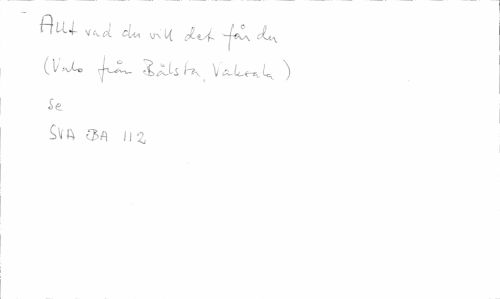 Allt vad du vill det får du
(Vals från Bålsta, Vaksala)
se
SVA BA 112